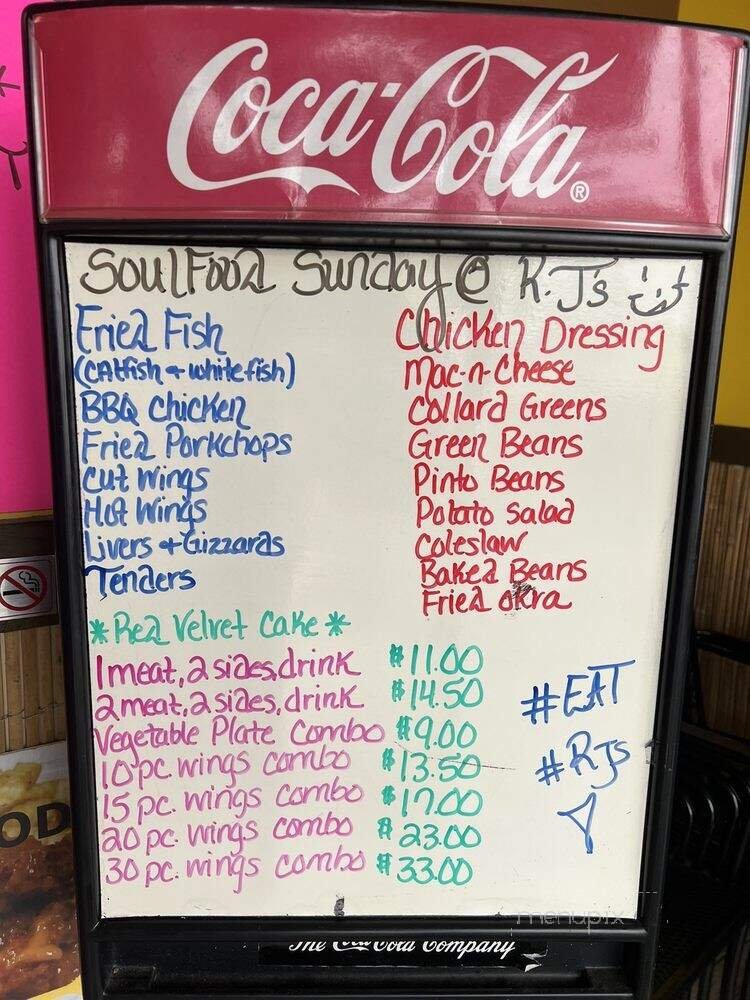 Coca-Cola®
Soul Food Sunday @ R.J's
Fried Fish
(catfish + whitefish)
BBQ chicken
Fried Porkchops
cut wings
Hot wings
Livers + Gizzards
Tenders
*Red Velvet Cake*
Chicken Dressing
Mac-n-Cheese
Collard Greens
Green Beans
Pinto Beans
Potato Salad
Coleslaw
Baked Beans
Fried okra
1 meat, 2 sides, drink $11.00
2 meat, 2 sides, drink $14.50
Vegetable Plate Combo $9.00
10 pc. wings combo $13.50
15 pc. wings combo $17.00
20 pc. wings combo $23.00
30 pc. wings combo $33.00
#EAT
#RJs
menupix
The Coca-Cola Company
OD